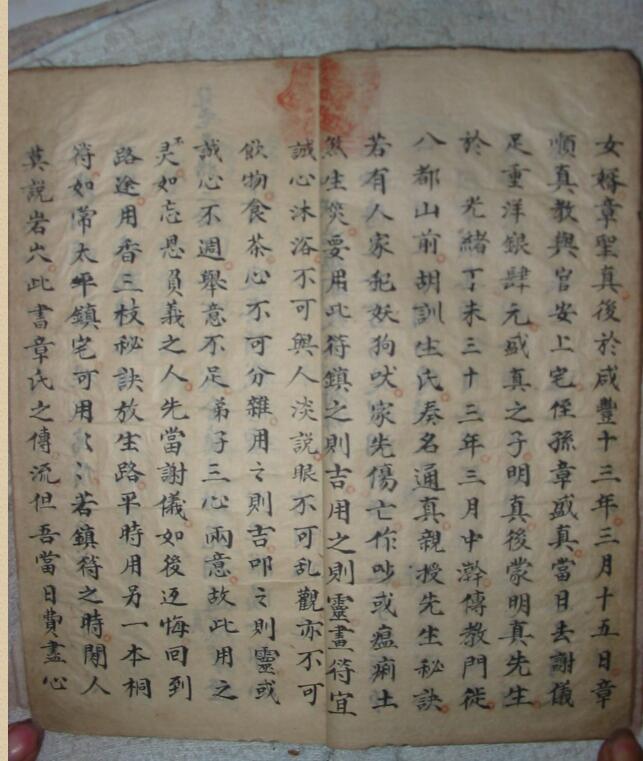 女婿章聖真後於咸豐十三年三月十五日章
順真教與官安上宅侄孫章盛真當日去謝儀
足重洋銀肆元盛真之子明真後蒙明真先生
於光緒丁未三十三年三月中澣傳教門徒
八都山前胡訓生氏奏名通真親授先生秘訣
若有人家犯妖狗吠家先傷亡作吵或瘟痢土
煞生災要用此符鎮之則吉用之則靈畫符宜
誠心沐浴不可與人淡說眼不可乱觀亦不可
飲物食茶心不可分雜用々則吉叩々則靈或
誠心不週舉意不足弟子三心兩意故此用之
不灵如忘恩負義之人先當謝儀如後返悔回到
路途用香三枝秘訣放生路平時用另一本桐
符如常太平鎮宅可用若鎮符之時閒人
莫說岩穴此書章氏之傳流但吾當日費盡心